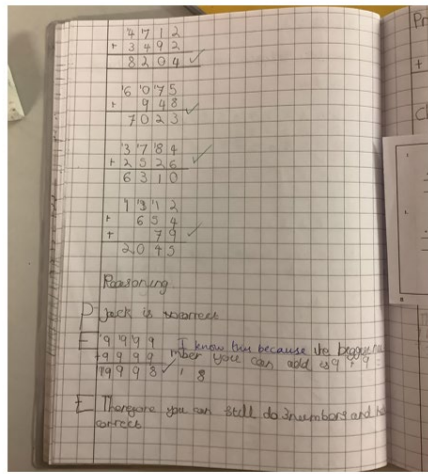 4712
+ 3492
8204
6075
+ 948
7023
3784
+ 2526
6310
1312
+ 654
+ 79
2045
Reasoning
P Jack is incorrect
E 9999 I know this because the biggest nu
+9999 mber you can add is 9 + 9 =
19998 18
E Therefore you can still do 3numbers and be
correct
Pr
+